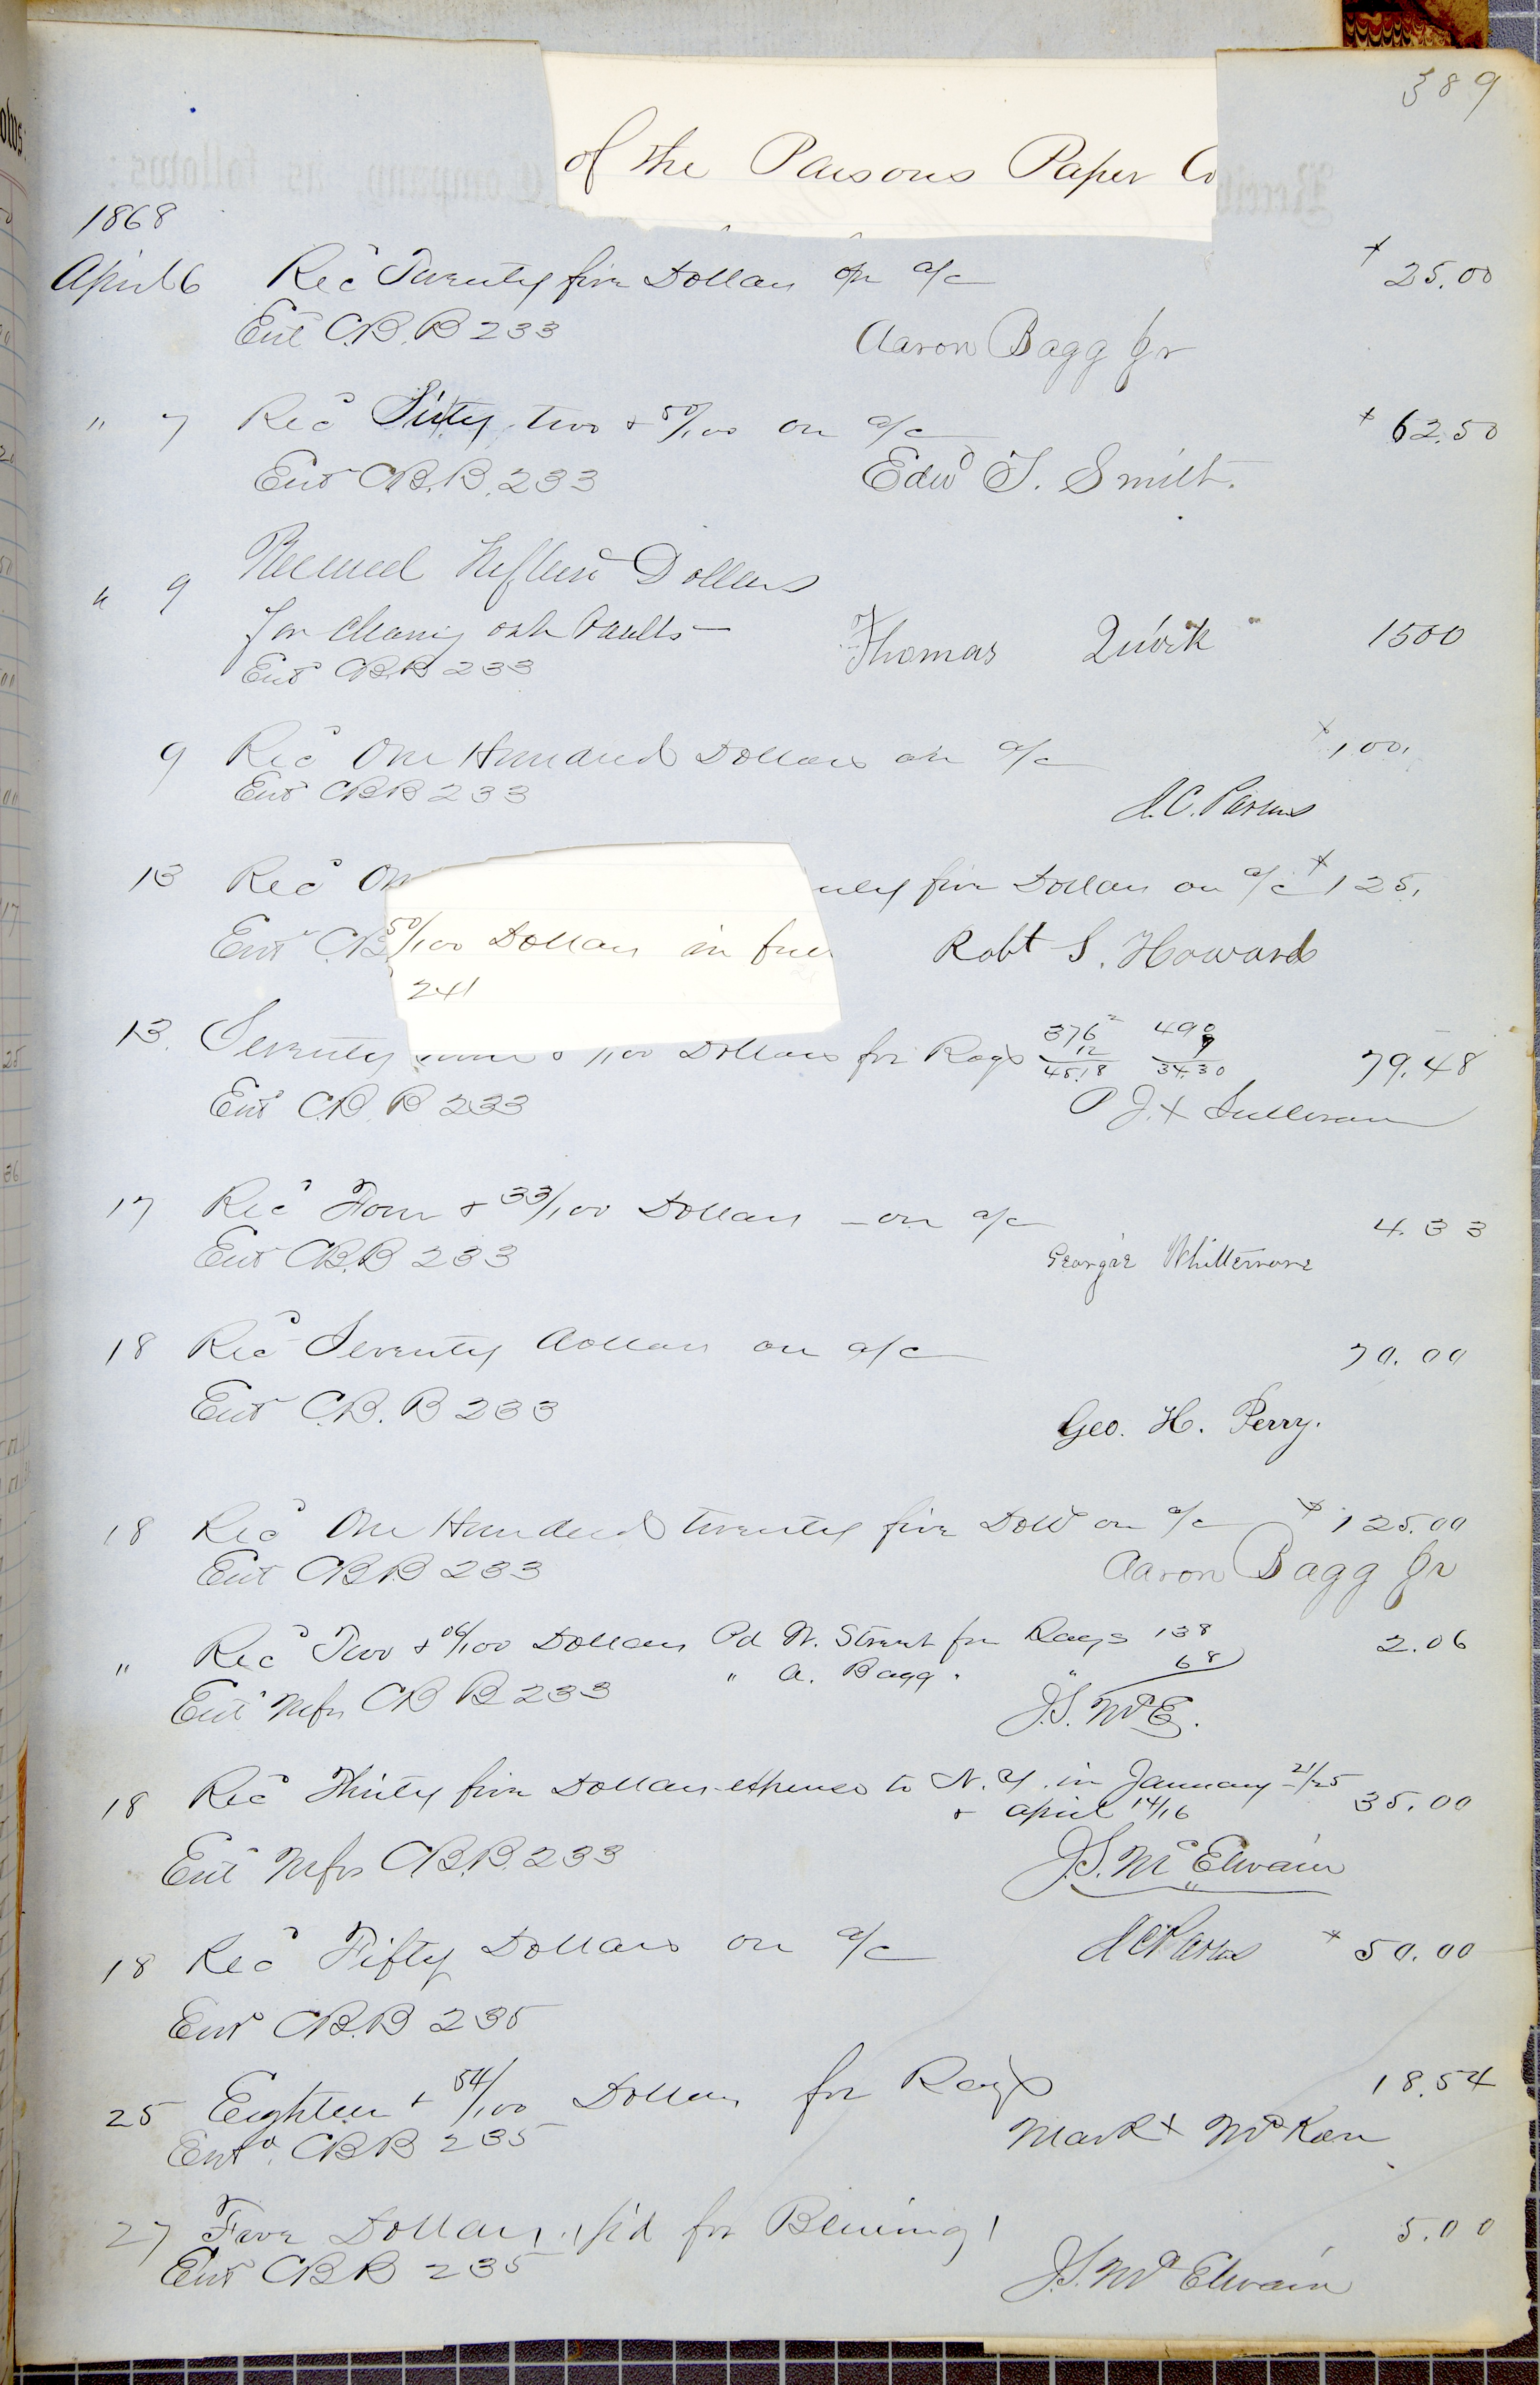 389
of the Parsons Paper Co
1868
April 6 Rec^d Twenty five Dollars on a/c 25.00
Ent C.B. B 233 Aaron Bagg Jr
" 7 Rec^d Sixty two & 50/100 on a/c 62.50
Ent C.B.B. 233 Edw^d S. Smith.
" 9 Received Dollars
for Cleaning vaults —
Thomas Quirk 1500
Ent CBB 233
9 Rec^d One Hundred Dollars on a/c 100.
Ent CBB 233 J.C. Parsons
13 Rec^d On nty five Dollars on a/c 125.
Ent C.B. Robt S. Howard
50/100 Dollars in full
241
13. Seventy /100 Dollars for Rags 376 12 45.18 490 7 34.30 79.48
Ent C.B. B 233 P J. X Sullivan
17 Rec^d Four & 33/100 Dollars — on a/c 4.33
Ent CB.B 233 George Whittemore
18 Rec^d Seventy dollars on a/c 70.00
Ent C.B. B 233 Geo. H. Perry.
18 Rec^d One Hundred twenty five Doll^s on a/c 125.00
Ent CBB 233 Aaron Bagg Jr
" Rec^d Two & 06/100 Dollars Pd W. Street for Rags 138 2.06
" A. Bagg " " 68
Ent Mfs CB B 233 J.S. McE.
18 Rec^d Thirty five Dollars expenses to N.Y. in January 21/25 35.00
& April 14/16
Ent Mfs CB.B. 233 J.S. McElwain
18 Rec^d Fifty Dollars on a/c J C Parsons 50.00
Ent CB.B 235
25 Eighteen & 54/100 Dollars for Rags 18.54
Ent^d. CBB 235 Mark X McKen
27 Five Dollars p'd for Blueing 5.00
Ent CBB 235 J.S. McElwain